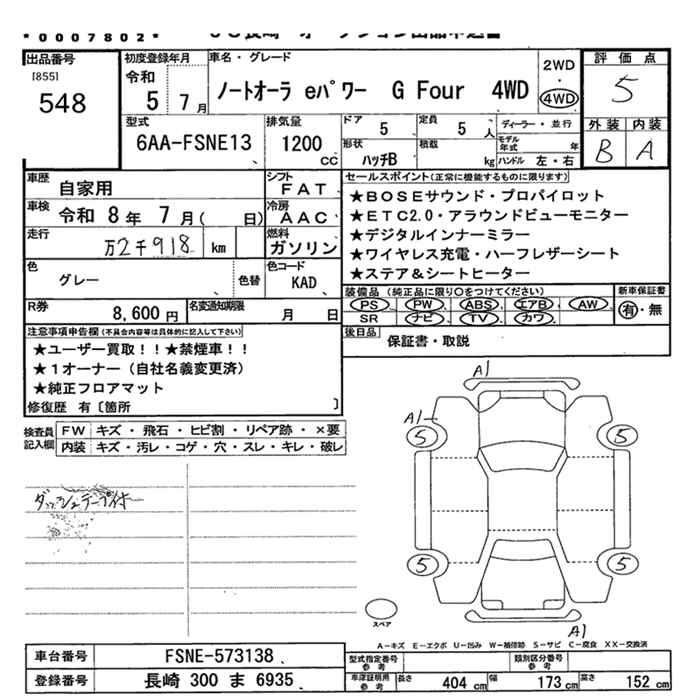 *0007802*
出品番号
[855]
548
初度登録年月
令和
5 7月
車名・グレード
ノートオーラ eパワー G Four 4WD
2WD
・
4WD
評価点
5
外装 内装
B A
型式
6AA-FSNE13
排気量
1200
cc
ドア
5
定員
5 人
ディーラー・並行
形状
ハッチB
積載
kg
モデル年式 年
ハンドル 左・右
車歴
自家用
シフト
FAT
車検
令和 8年 7月( 日)
冷房
AAC
走行
万2千918 km
燃料
ガソリン
色
グレー
色替
色コード
KAD
R券
8,600円
名変通知期限
月 日
セールスポイント(正常に機能するものに限ります)
★BOSEサウンド・プロパイロット
★ETC2.0・アラウンドビューモニター
★デジタルインナーミラー
★ワイヤレス充電・ハーフレザーシート
★ステア&シートヒーター
装備品(純正品に限り○をつけてください)
PS PW ABS エアB AW
SR ナビ TV カワ
新車保証書
有・無
後日品
保証書・取説
注意事項申告欄(不具合内容等は具体的に記入して下さい)
★ユーザー買取!!★禁煙車!!
★1オーナー(自社名義変更済)
★純正フロアマット
修復歴 有〔箇所 〕
検査員記入欄
FW キズ・飛石・ヒビ割・リペア跡・×要
内装 キズ・汚レ・コゲ・穴・スレ・キレ・破レ
ダッシュテープ付
A1
A1
5 5
5 5
A1
スペア
A-キズ E-エクボ U-凹み W-補修跡 S-サビ C-腐食 XX-交換済
車台番号
FSNE-573138
登録番号
長崎 300 ま 6935
型式指定番号
参考
類別区分番号
参考
車庫証明用
参考
長さ 404 cm
幅 173 cm
高さ 152 cm